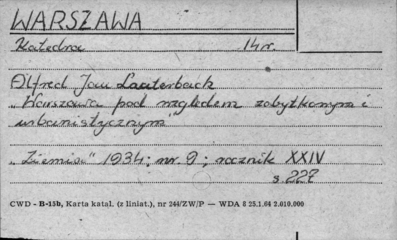 WARSZAWA
Katedra 14 r.
Alfred Jan Lauterbach
„Warszawa pod względem zabytkowym i
urbanistycznym"
„Ziemia" 1934; nr. 9; rocznik XXIV
s 227
CWD - B-15b, Karta katal. (z liniat.), nr 244/ZW/P — WDA 8 25.1.64 2.010.000